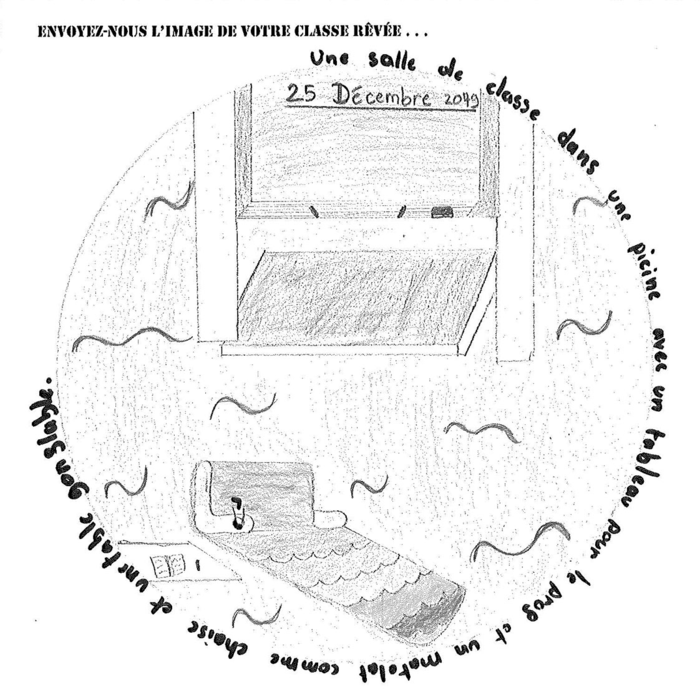 ENVOYEZ-NOUS L'IMAGE DE VOTRE CLASSE RÊVÉE . . .
Une salle de classe dans une picine avec un tableau pour le prog et un matelat comme chaise et une table gonglable.
25 Décembre 2049